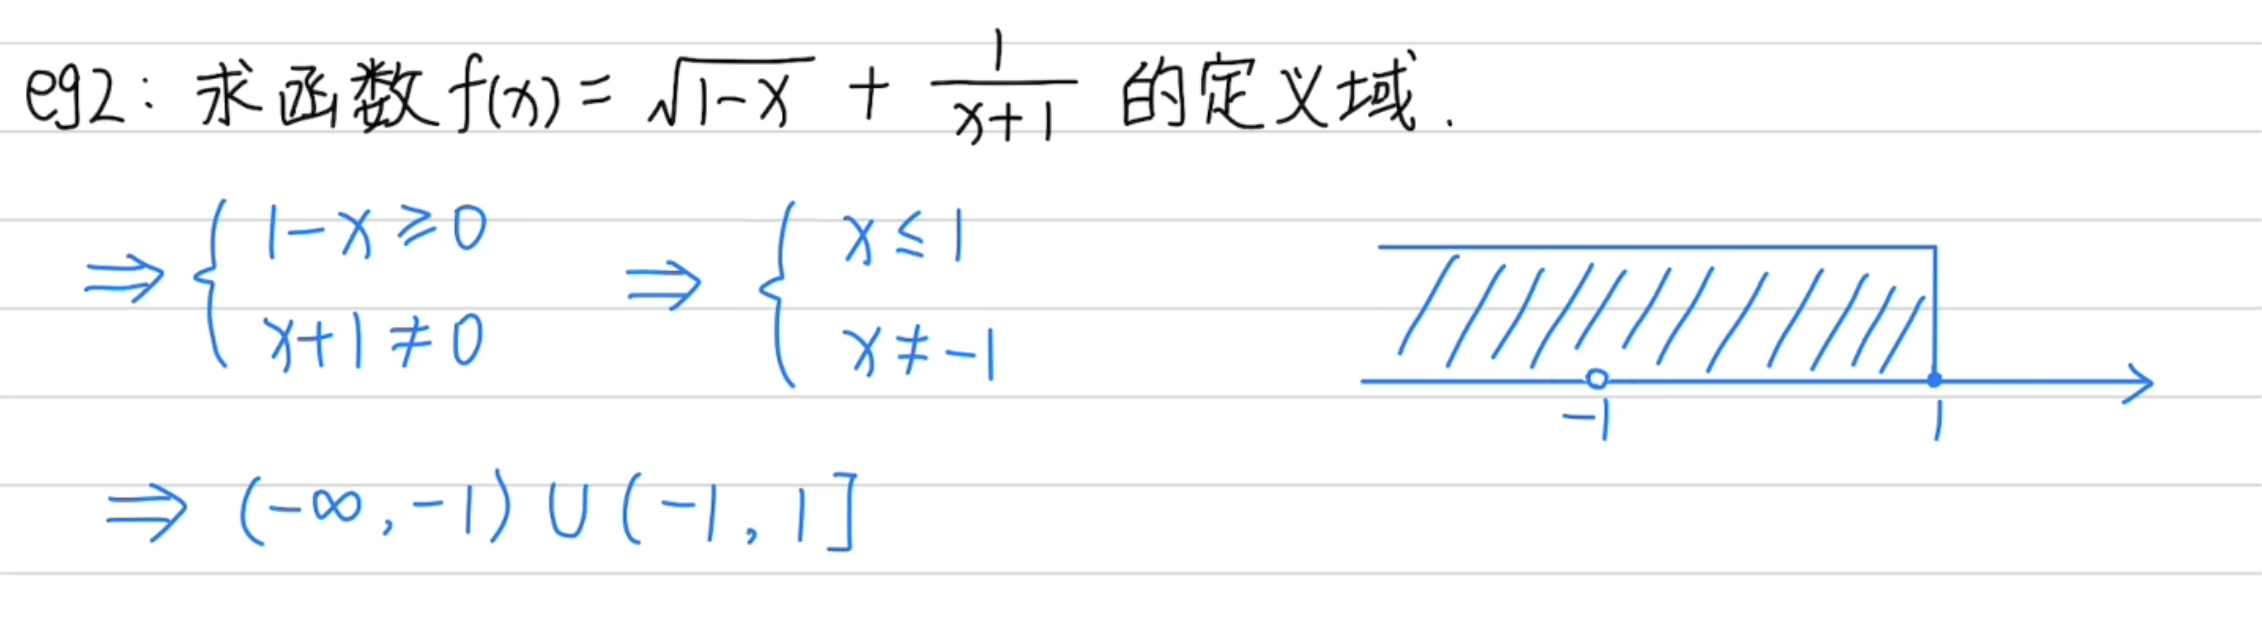 eg2: 求函数 f(x) = √(1-x) + 1/(x+1) 的定义域.
⇒ { 1-x ≥ 0 ⇒ { x ≤ 1
x+1 ≠ 0 x ≠ -1
-1 1
⇒ (-∞, -1) ∪ (-1, 1]